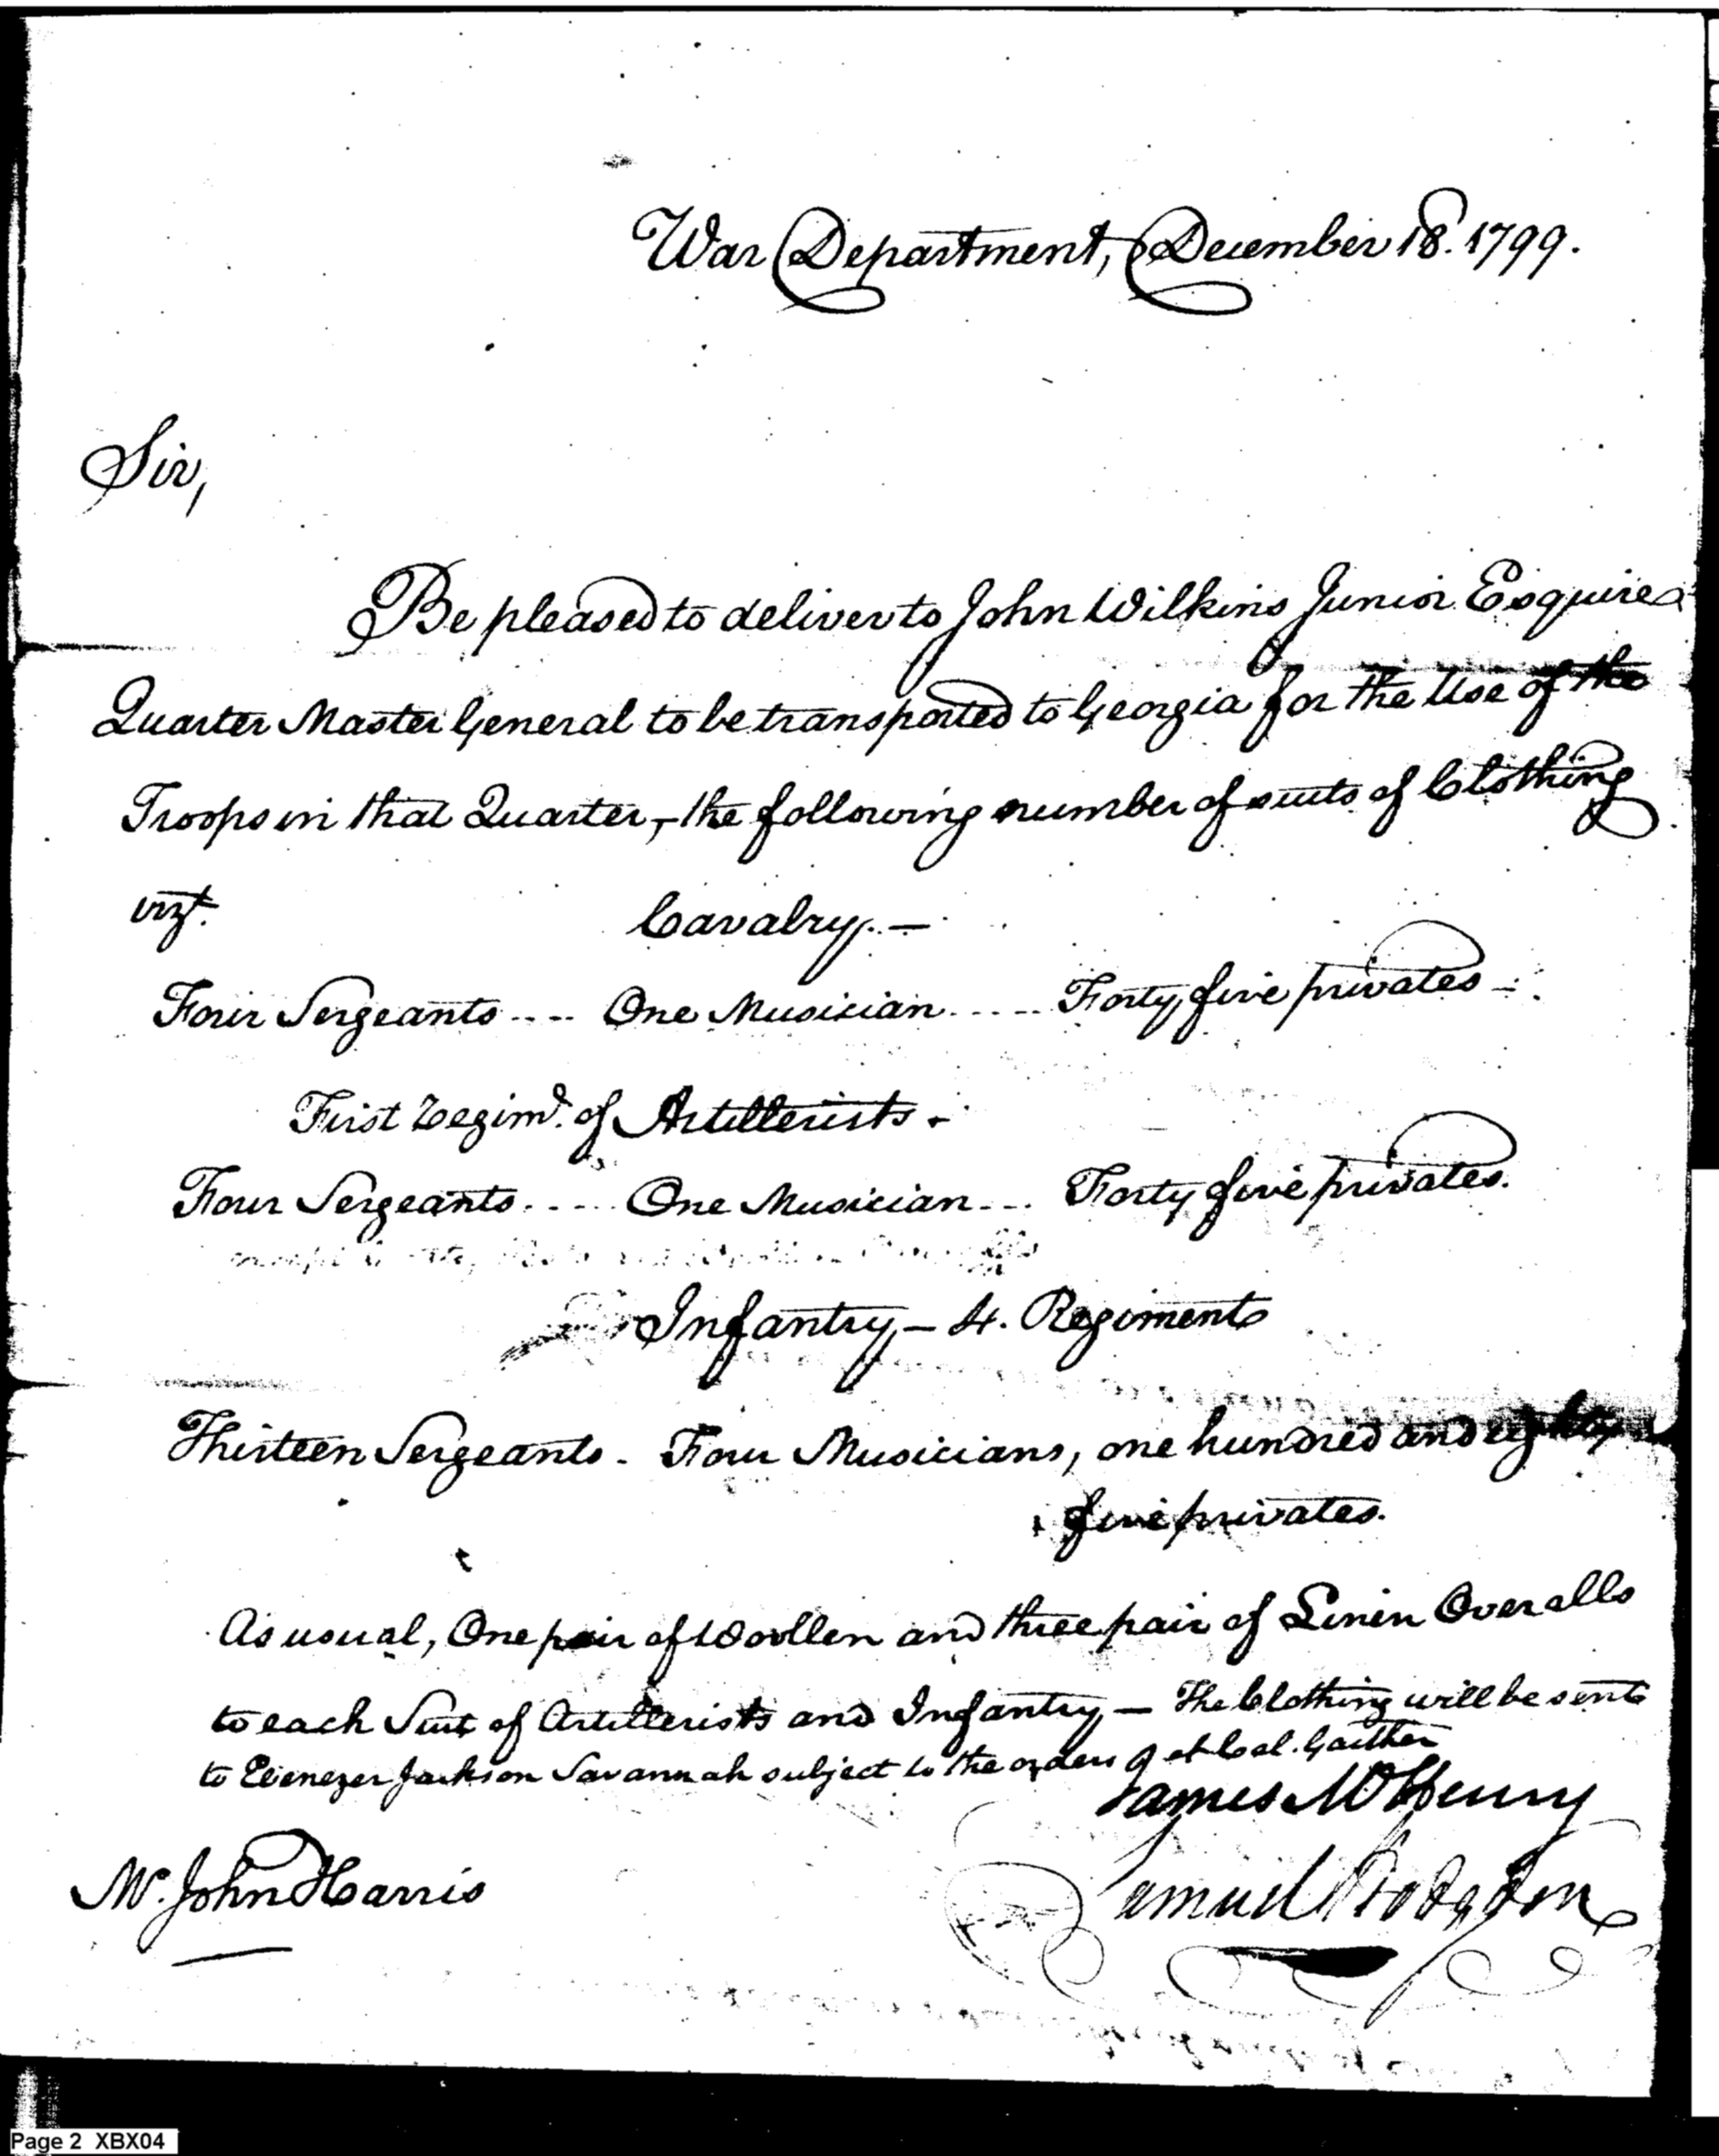 War Department, December 18. 1799.
Sir,
Be pleased to deliver to John Wilkins Junior Esquire
Quarter Master General to be transported to Georgia for the Use of the
Troops in that Quarter, - the following number of suits of Clothing
vizt.
Cavalry. -
Four Sergeants .... One Musician ..... Forty five privates -
First Regimt. of Artillerists.
Four Sergeants ..... One Musician ... Forty five privates.
Infantry - 4. Regiments
Thirteen Sergeants. Four Musicians, one hundred and eighty
five privates.
As usual, One pair of Woollen and three pair of Linen Overalls
to each Suit of Artillerists and Infantry - The Clothing will be sent
to Ebenezer Jackson Savannah subject to the orders of Lt Col. Gaither
James McHenry
Samuel Hodgdon
Mr. John Harris
Page 2 XBX04